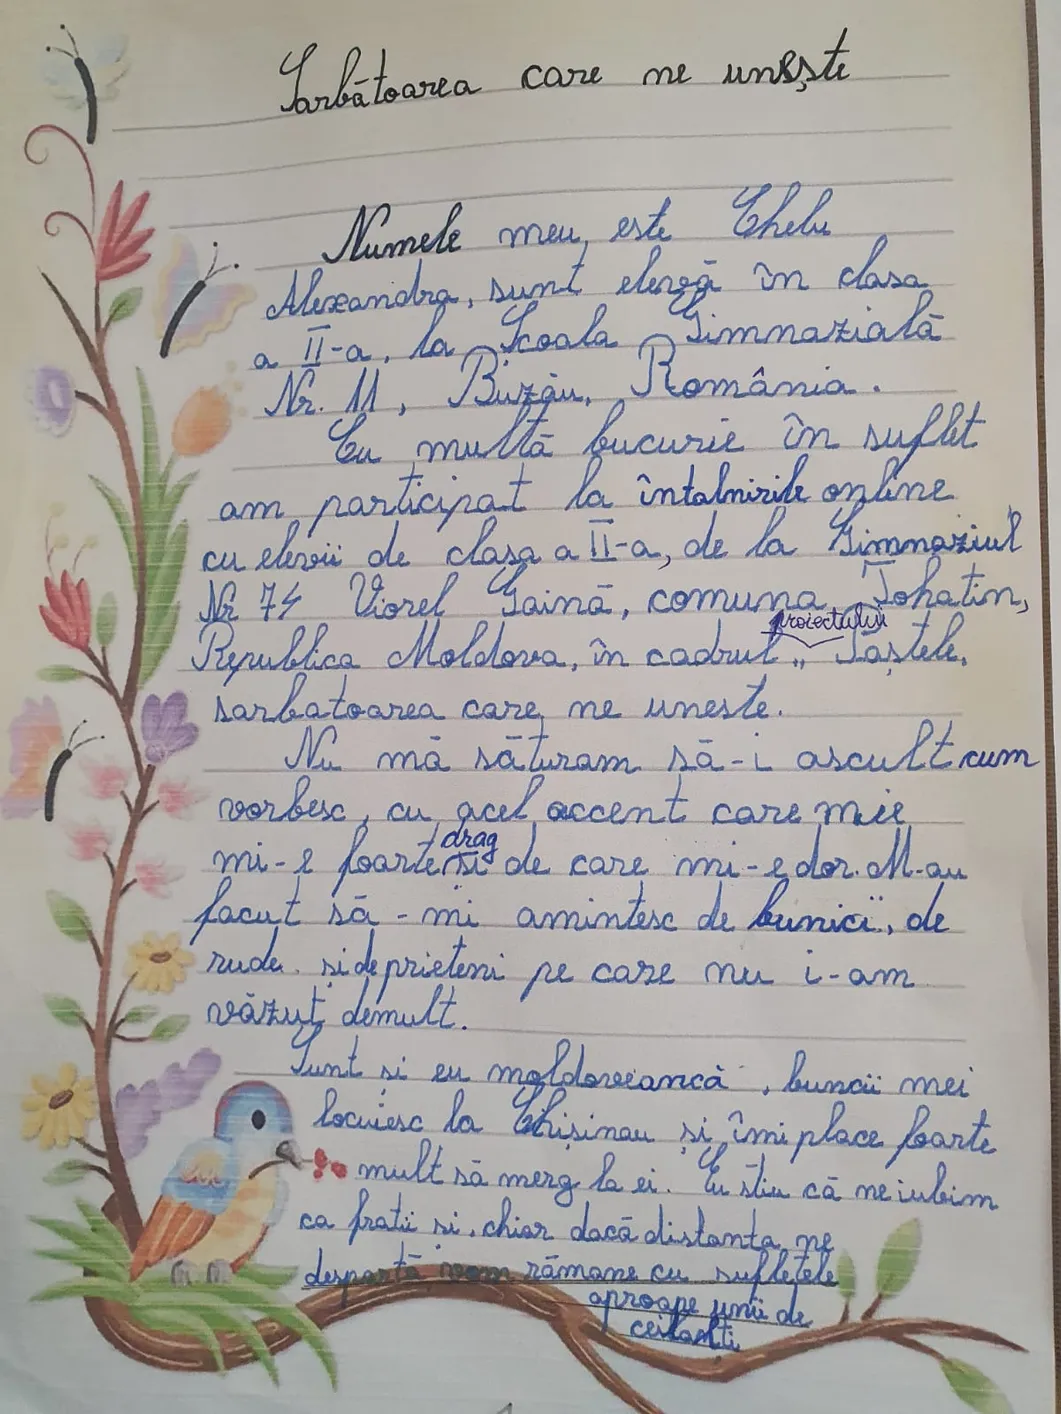 Sarbătoarea care ne unește
Numele meu, este Chelu
Alexandra, sunt elevă în clasa
a II-a, la Școala Gimnazială
Nr. 11, Buzău, România.
Cu multă bucurie în suflet
am participat la întalnirile online
cu elevii de clasa a II-a, de la Gimnaziul
Nr 74 Viorel Gaină, comuna Tohatin,
proiectului
Republica Moldova, în cadrul „Paștele,
sarbatoarea care ne uneste.
Nu mă săturam să-i ascult cum
vorbesc, cu acel accent care mie
drag
mi-e foarte si de care mi-e dor. M-au
facut să-mi amintesc de bunici, de
rude și de prieteni pe care nu i-am
văzut demult.
Sunt si eu moldoveancă, buncii mei
locuiesc la Chișinau și îmi place foarte
mult să merg la ei. Eu stiu că ne iubim
ca fratii si, chiar dacă distanta ne
desparta vom rămane cu sufletele
aproape unii de
ceilanti